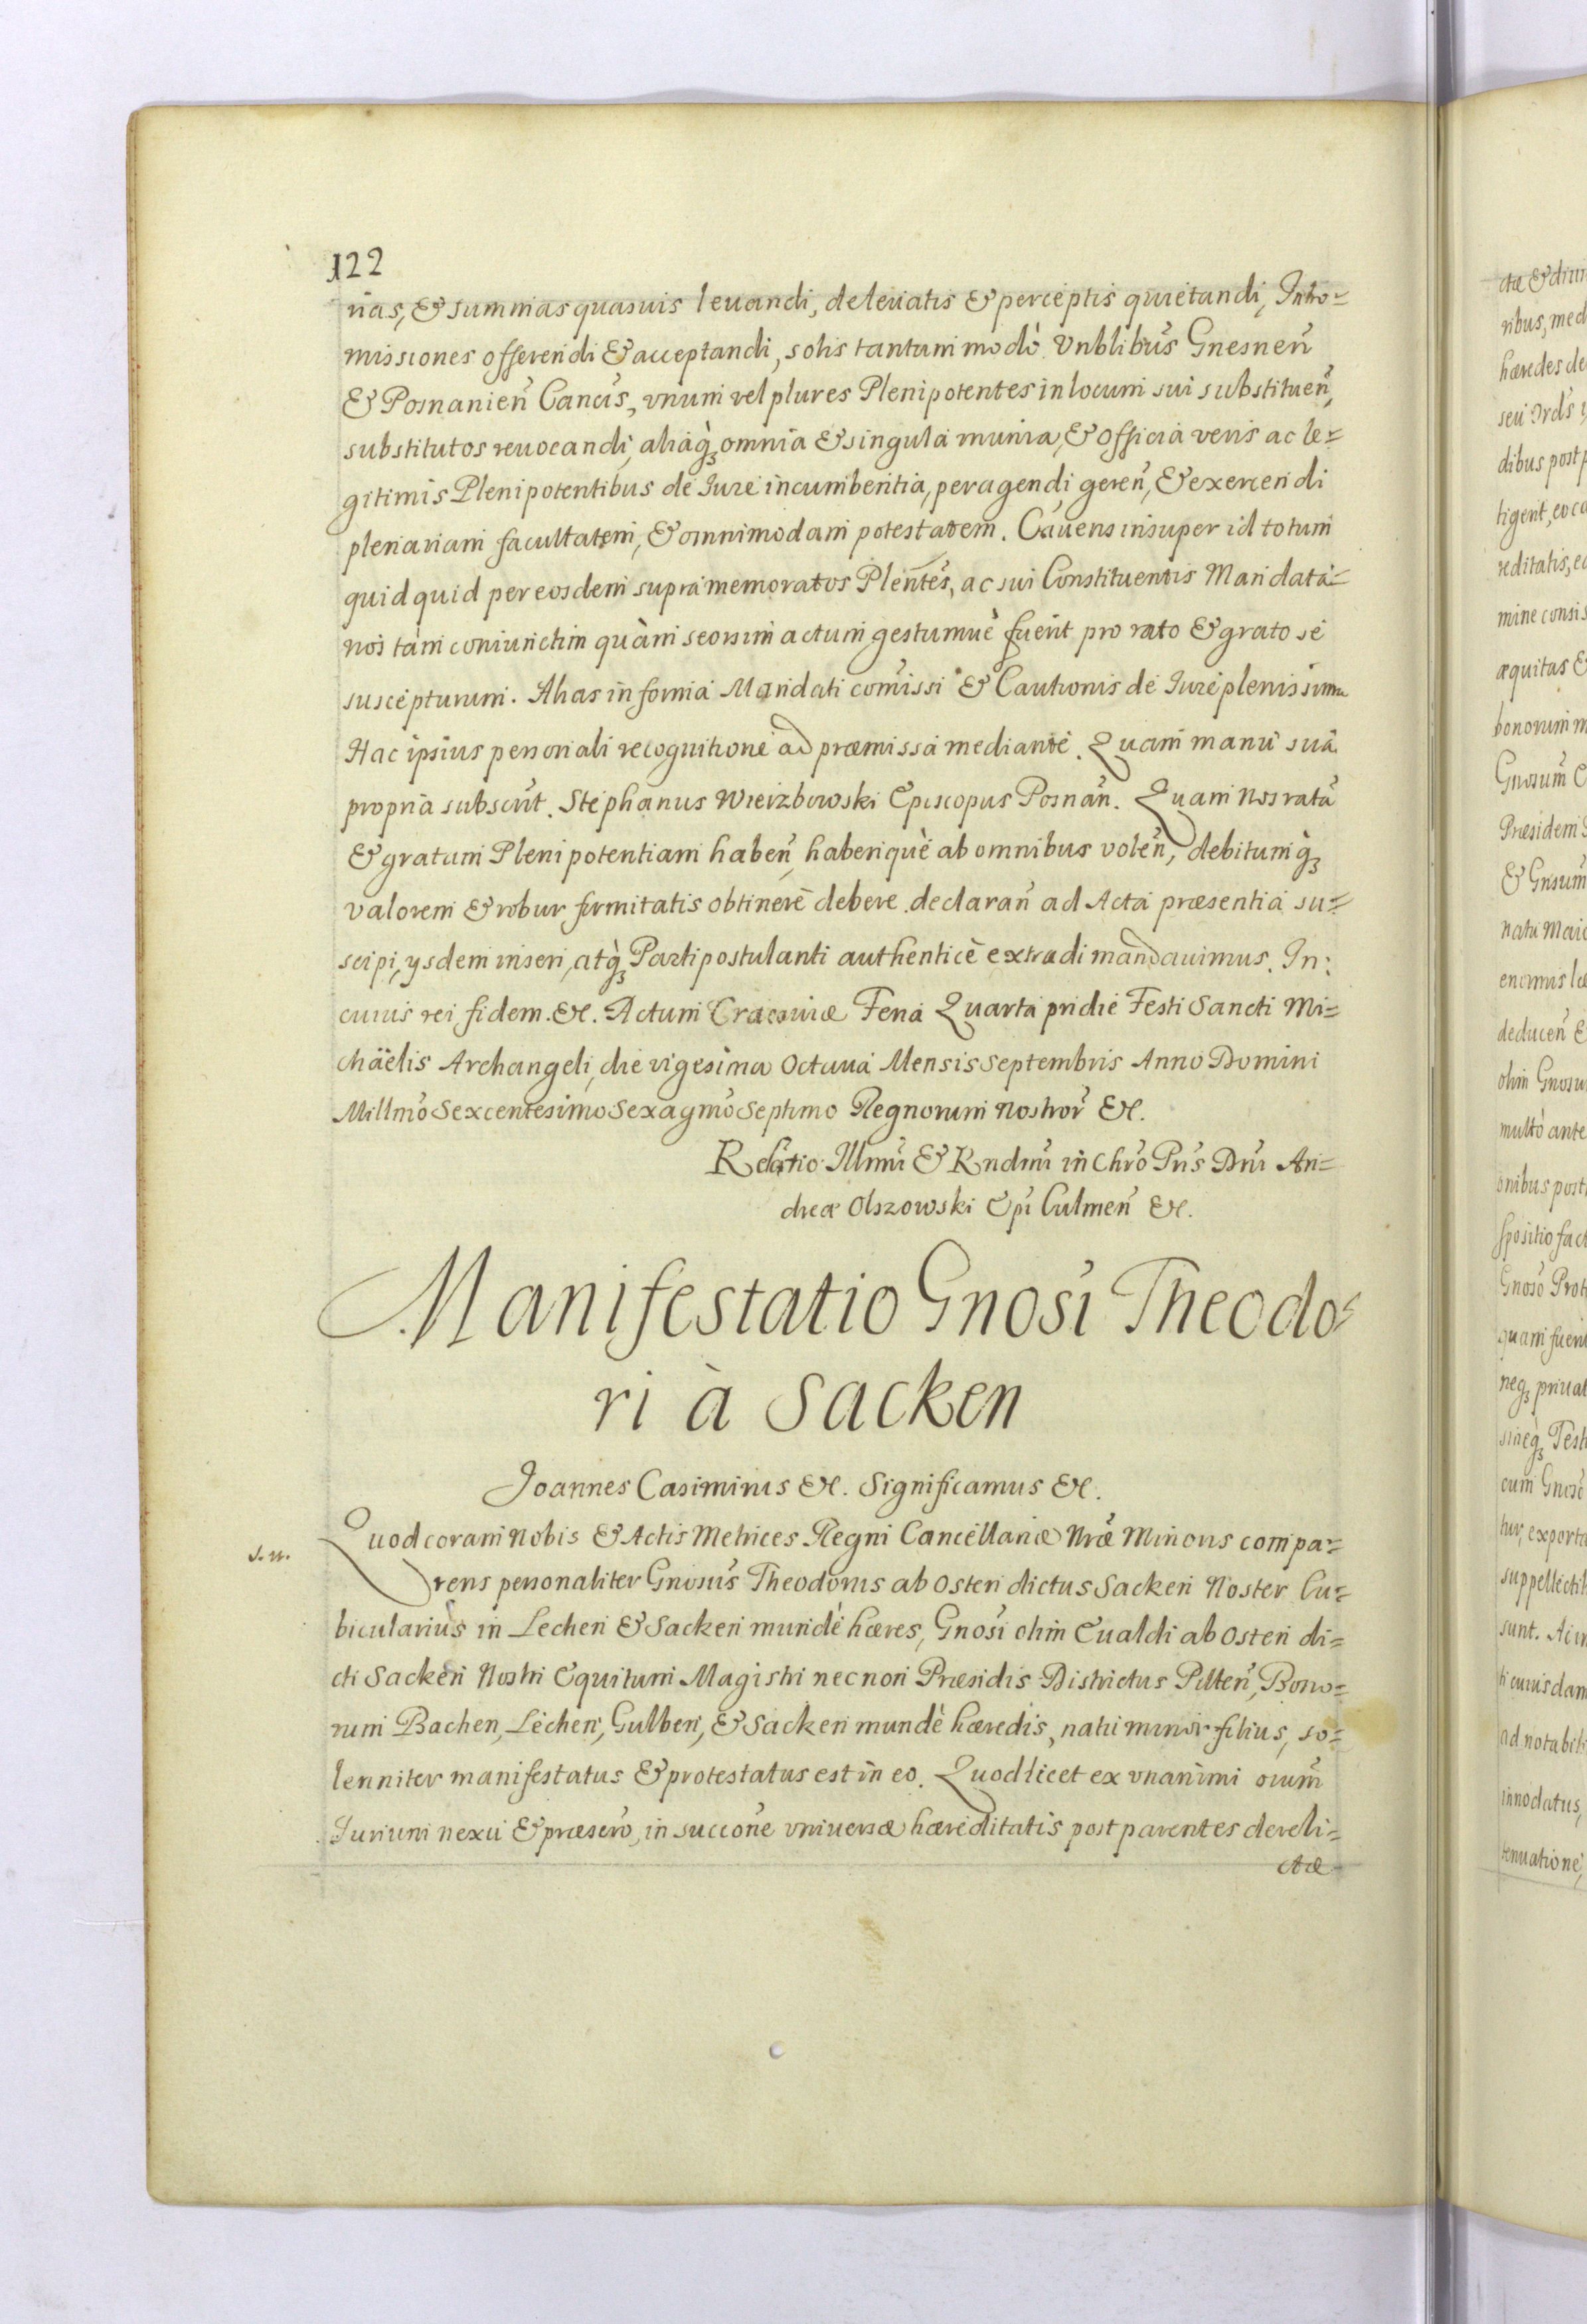 122
nas, & summas quasuis leuandi, de leuatis & perceptis quietandi, Intro=
missiones offerendi & acceptandi, solis tantum modò Vnblibus̃ Gnesneñ
& Posnanieñ Cancis̃, vnum vel plures Plenipotentes in locum sui substitueñ,
substitutos reuocandi, aliaq̀ȝ omnia & singula munia, & officia veris ac le=
gitimis Plenipotentibus de Iure incumbentia, peragendi gereñ, & exercendi
plenariam facultatem, & omnimodam potestatem. Cauens insuper id totum
quid quid per eosdem supra memoratos Pleñtes, ac sui Constituentis Mandata=
rios tàm coniunctim quàm seorsim actum gestumuè fuerit pro rato & grato se
suscepturum. Alias in forma Mandati com̃issi & Cautionis de Iure plenissima
Hac ipsius personali recognitione ad præmissa mediante. Quam manu suâ
propria subscr̃it. Stephanus Wierzbowski Episcopus Posnañ. Quam Nos ratã
& gratam Plenipotentiam habeñ, haberiquè ab omnibus voleñ, debitumq̀ȝ
valorem & robur firmitatis obtinere debere declarañ ad Acta præsentia su=
scipi, ysdem inseri, atq̀ȝ Parti postulanti authenticè extradi mandauimus. In:
cuius rei fidem. &c. Actum Cracouiæ Feria Quarta pridie Festi Sancti Mi=
chäelis Archangeli, die vigesima Octaua Mensis Septembris Anno Domini
Millmo̊ Sexcentesimo Sexagmo̊ Septimo Regnorum Nostror̃ &c.
Relatio Illmi̇̃ & Rndmi̇̃ in Chro̊ Pris̃ Dni̇̃ An=
dreæ Olszowski Epi̇̃ Culmeñ &c.
Manifestatio Gnosi̇̃ Theodo=
ri à Sacken
Joannes Casimirus &c. Significamus &c.
Quod coram Nobis & Actis Metrices Regni Cancellariæ Nræ̃ Minoris compa=
rens personaliter Gnosus̃ Theodorus ab Osten dictus Sacken Noster Cu=
bicularius in Lechen & Sacken mundè hæres, Gnosi̇̃ olim Eualdi ab Osten di=
cti Sacken Nostri Equitum Magistri nec non Præsidis Districtus Pilteñ, Bono=
rum Bachen, Lechen, Gulben, & Sacken mundè hæredis, natu minor filius, so=
lenniter manifestatus & protestatus est in eo. Quod licet ex vnanimi oium̃
Iurium nexu & præsero̊, in successone̊ vniuersæ hæreditatis post parentes dereli=
ctæ